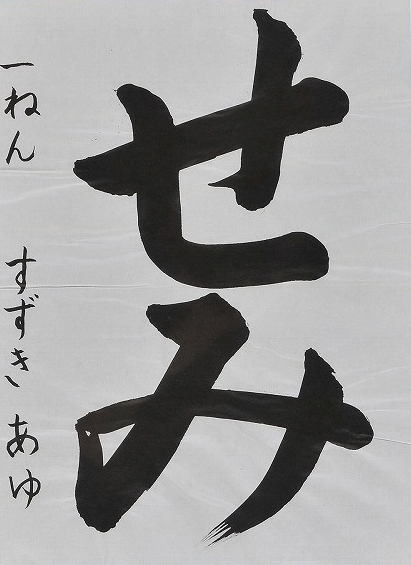 せみ
一ねん すずき あゆ